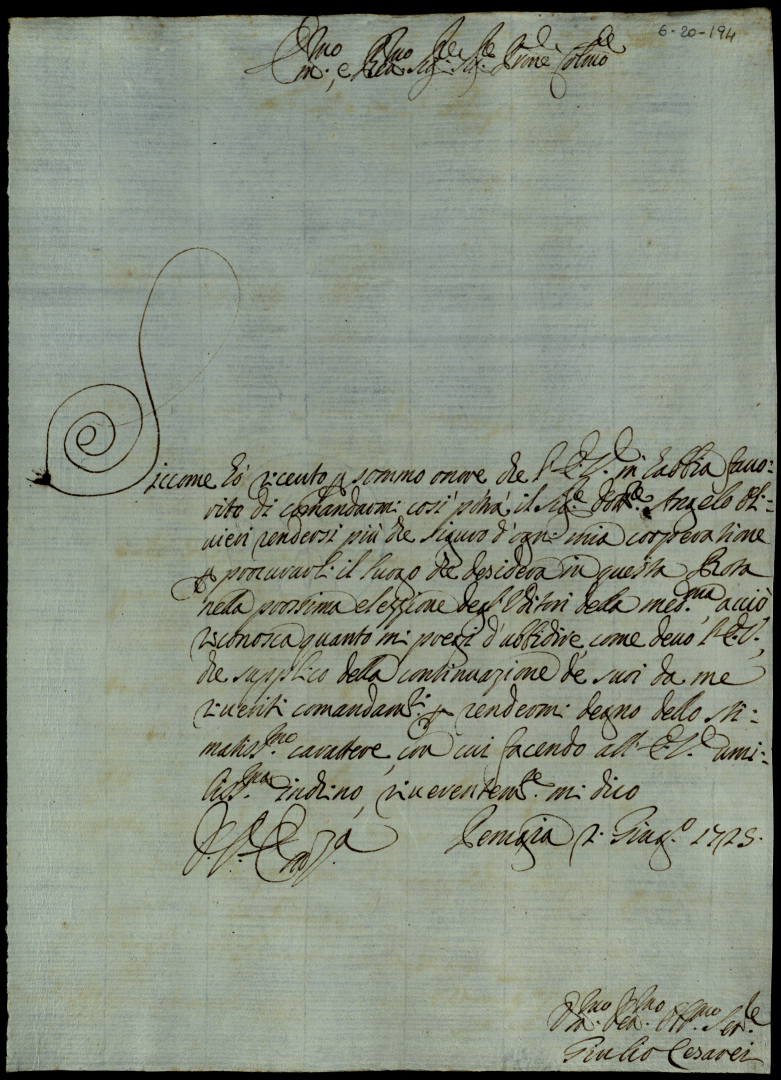 6-20-194
Em.mo, e Rev.mo Sig.re Sig.re P.rone Col.mo
Siccome hò riceuto p sommo onore che l'E.V. m habbia fauo:
rito di comandarmi così potrà il Sig.re Angelo Oli:
uieri rendersi più che siguro d'ogni mia cooperatione
p procurarli il luogo che desidera in questa Rota
nella prossima elezzione degl'Vditori della med.ma acciò
riconosca quanto mi pregi d'ubbidire, come deuo l'E.V.,
che supplico della continuazione de suoi da me
riueriti comandam.ti p rendermi degno dello sti:
matiss.mo carattere, con cui facendo all'E.V. umi:
liss.mo inchino, riuerentem.te mi dico
D. V. Em.za
Perugia 2. Giug.o 1725.
Vm.mo Dev.mo Obb.mo Ser.re
Giulio Cesarei